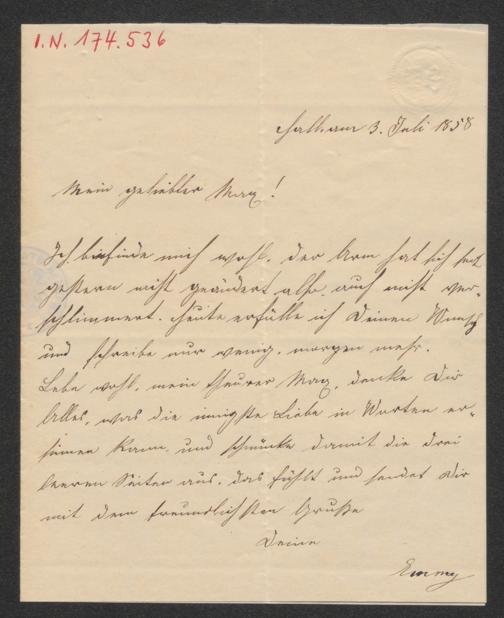 I.N. 174.536
Hall am 3. Juli 1858
Mein geliebter Max!
Ich befinde mich wohl. der Arm hat sich seit
gestern nicht geändert also auch nicht ver-
schlimmert. Heute erfülle ich Deinen Wunsch
und schreibe nur wenig. morgen mehr.
Lebe wohl, mein theurer Max, denke Dir
Alles, was die innigste Liebe in Worten er-
sinnen kann, und schmücke damit die drei
leeren Seiten aus. das fühlt und sendet Dir
mit dem freundlichsten Gruße
Deine
Emmy